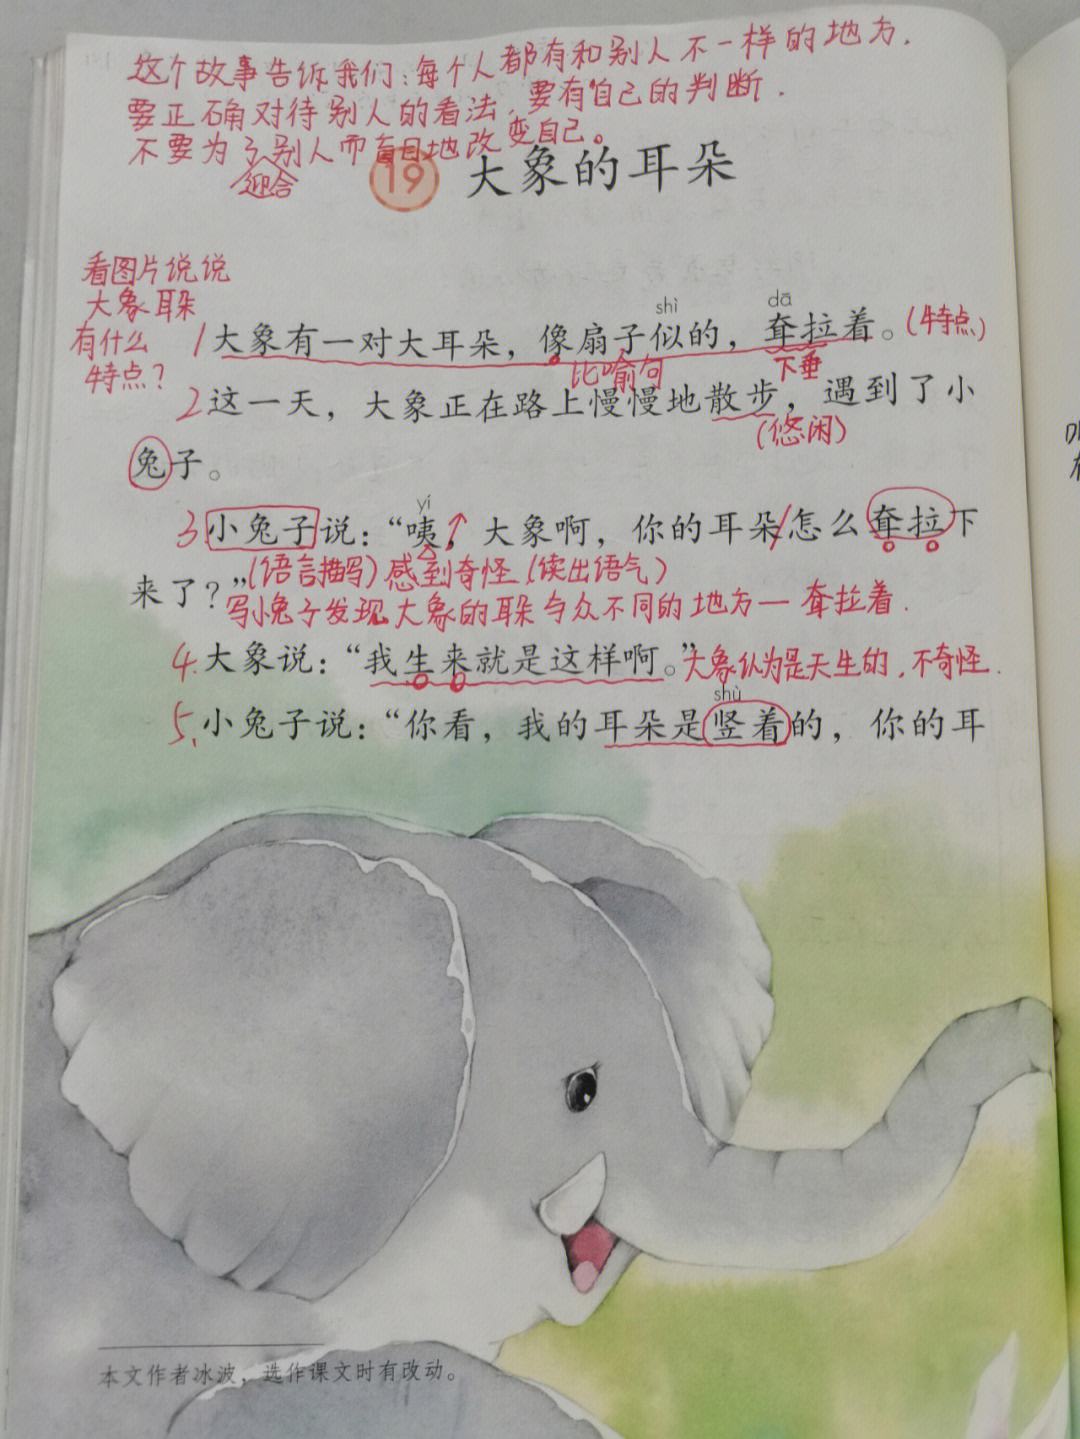 这个故事告诉我们:每个人都有和别人不一样的地方.
要正确对待别人的看法,要有自己的判断.
不要为了别人而盲目地改变自己。
迎合
19 大象的耳朵
看图片说说
大象耳朵
有什么
特点?
shì dā
1大象有一对大耳朵,像扇子似的,耷拉着。(特点)
比喻句 下垂
2这一天,大象正在路上慢慢地散步,遇到了小
(悠闲)
兔子。
yí
3小兔子说:“咦,大象啊,你的耳朵怎么耷拉下
(语言描写)感到奇怪(读出语气)
来了?”
写小兔子发现大象的耳朵与众不同的地方一耷拉着.
4.大象说:“我生来就是这样啊。”大象认为是天生的,不奇怪.
shù
5.小兔子说:“你看,我的耳朵是竖着的,你的耳
本文作者冰波,选作课文时有改动。